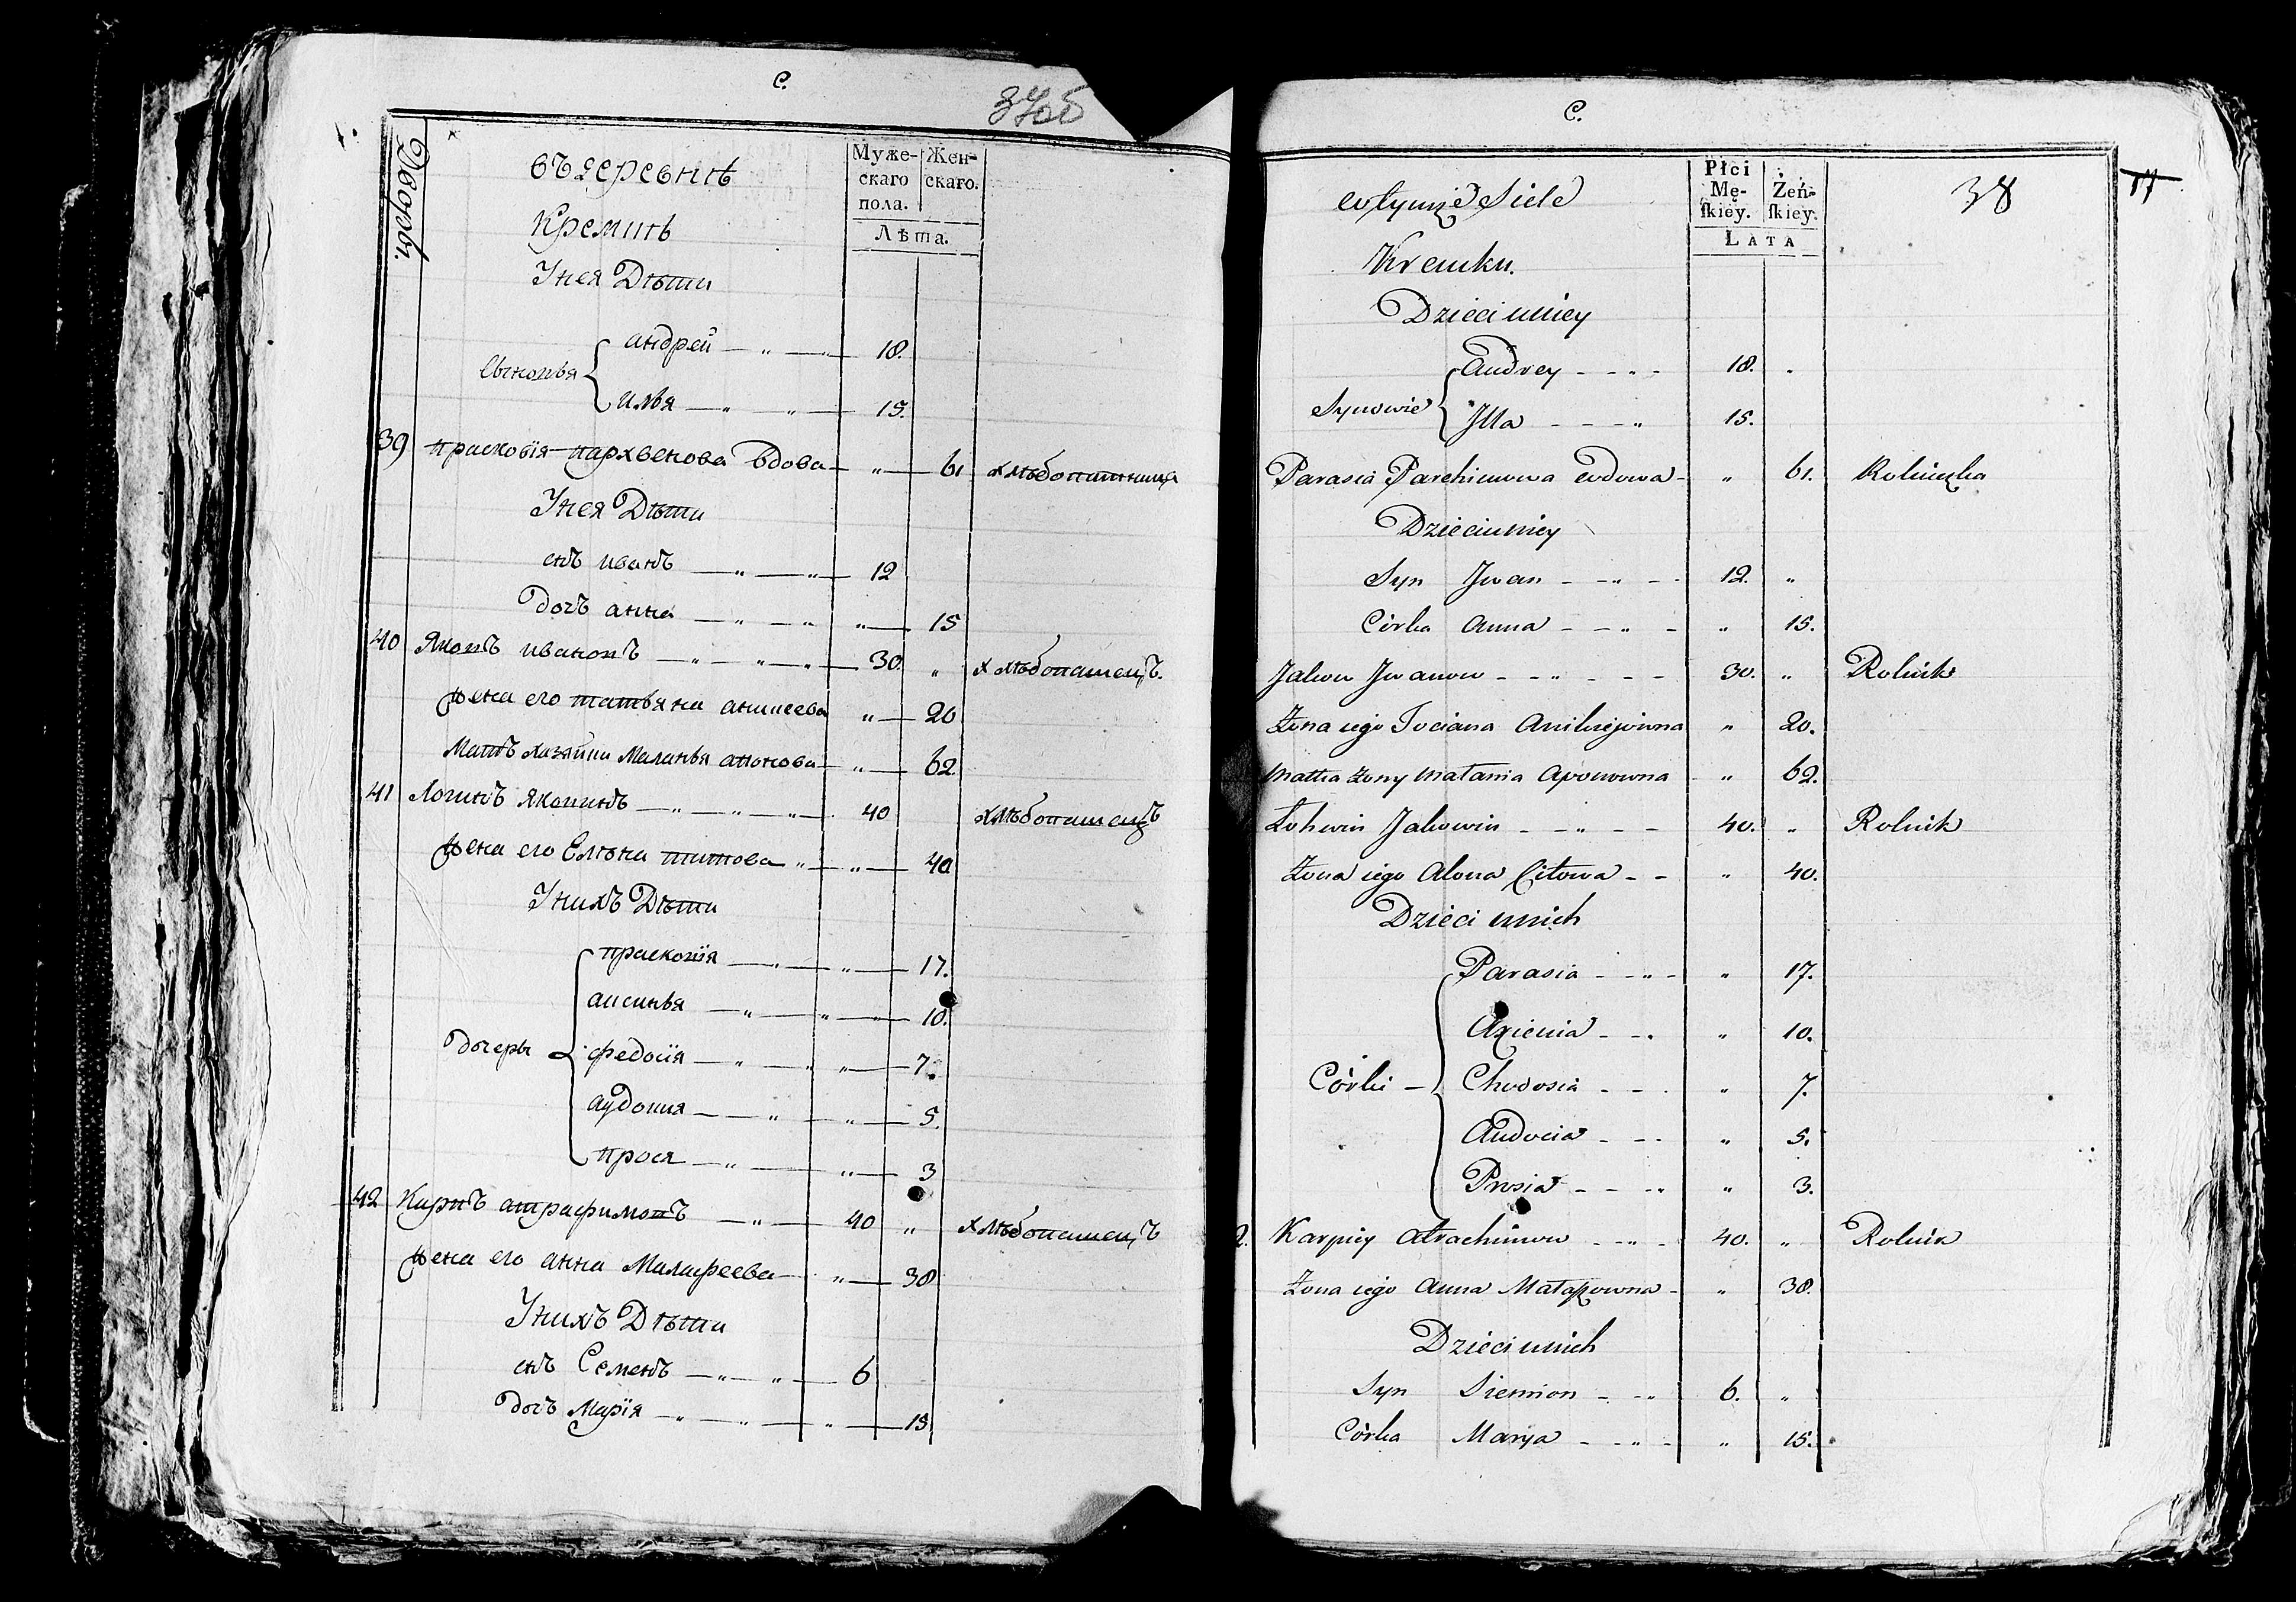 С.
37об
Дворы.
въ Деревнѣ
Муже-
скаго
пола.
Жен-
скаго.
Лѣта.
Кремнѣ
Унея Дѣти
Сыновья
андрей 18.
илья 15.
39 прасковія пархвенова вдова " 61 хлѣбопашница
Унея Дѣти
снъ иванъ 12
дочь анна " 15
40 Яковъ ивановъ 30. " хлѣбопашецъ.
жена его татьяна аникеева " 20
Мать хазяйки Маланья апонова " 62
41 Логинъ яковинъ 40 хлѣбопашецъ
жена его Елѣна титова " 40
Унихъ Дѣти
дочеры
прасковія " 17.
аксинья " 10.
федосія " 7.
аудокия " 5.
прося " 3
42 Карпъ атрафимовъ 40 " хлѣбопашецъ
жена его анна Малафеева " 38
Унихъ Дѣти
снъ Семенъ 6
дочь Марія " 15
С.
w tymże Siele
Płci
Mę-
skiey.
Żeń-
skiey.
LATA
38
17
Kremku.
Dzieci u niey
Synowie
Andrey 18. "
Jlla 15.
Parasia Parchimowa wdowa " 61. Rolniczka
Dzieci u niey
Syn Jwan 12. "
Córka Anna " 15.
Jakow Jwanow 30. " Rolnik
Żona iego Taciana Anikiejowna " 20.
Matka żony Małania Aponowna " 62.
Łohwin Jakowin 40. " Rolnik
Żona iego Alona Citowa " 40.
Dzieci u nich
Córki
Parasia " 17.
Axienia " 10.
Chwdosia " 7.
Audocia " 5.
Prosia " 3.
2. Karpiey Atrachimow 40. " Rolnik
Żona iego Anna Małapowna " 38.
Dzieci u nich
Syn Siemion 6. "
Córka Marya " 15.